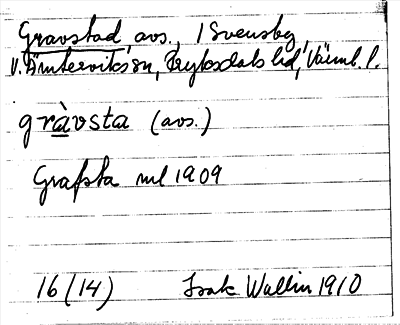 Gravstad avs. / Svensby,
V. Ämterviks sn, Fryksdals hd, Värml. l.
gràvsta (avs.)
Grafsta ml 1909
16 (14) Isak Wallin 1910